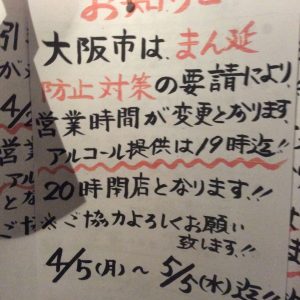 お知らせ
大阪市は、まん延
防止対策の要請により
営業時間が変更となります
アルコール提供は19時迄!!
20時閉店となります!!
※ご協力よろしくお願い
致します!!
4/5(月)〜5/5(水)迄!!